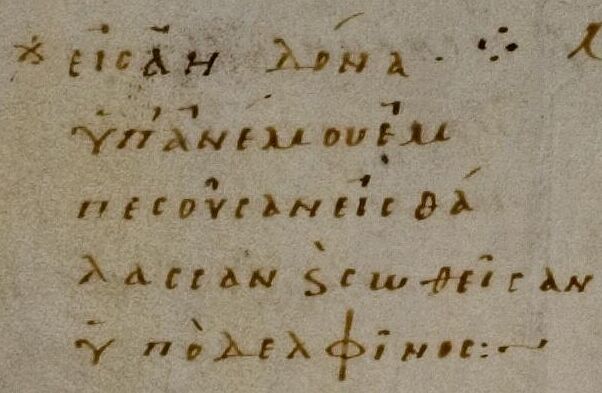 εἰς ἀηδόνα · ⁘
ὑπ' ἀνέμου ἐμ
πεσοῦσαν εἰς θά
λασσαν ϗ̀ σωθεῖσαν
ὑπὸ δελφῖνος :~